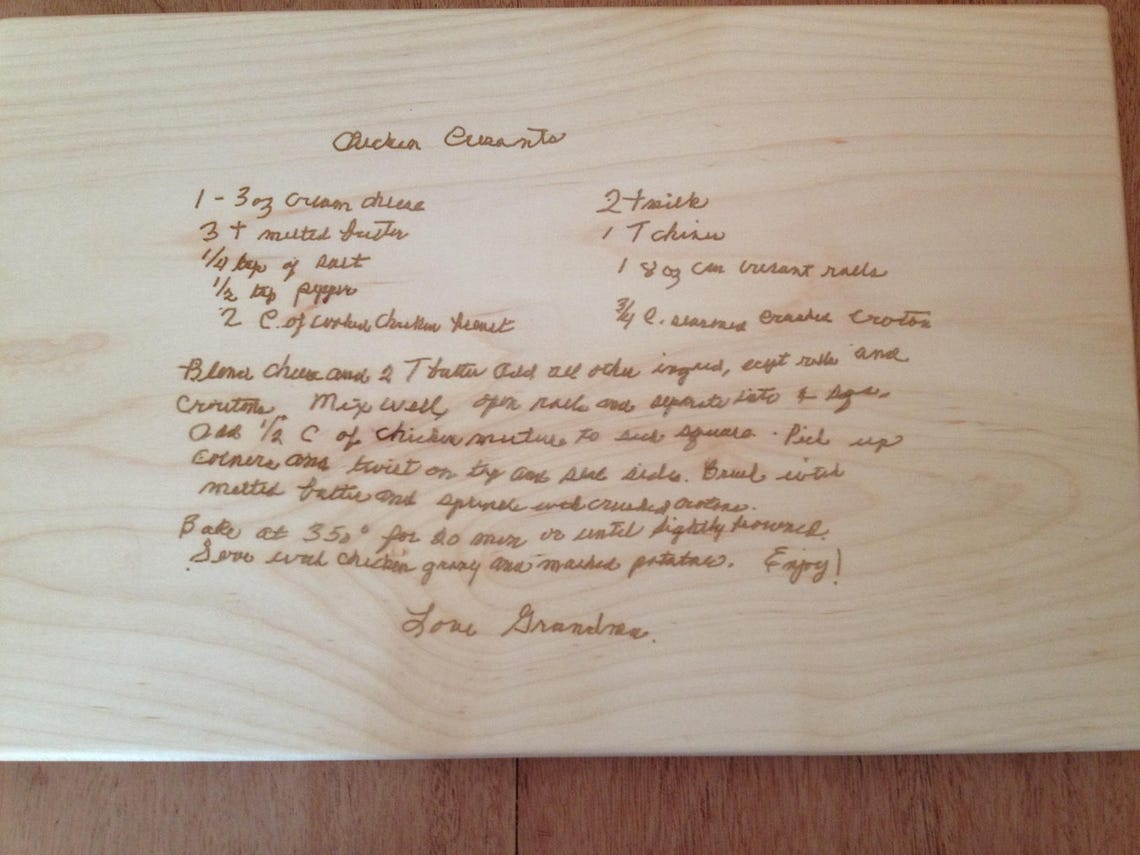 Chicken Cresants
1 - 3 oz cream cheese
3 T melted butter
1/4 tsp of salt
1/2 tsp pepper
2 C. of cooked chicken breast
2 T milk
1 T chives
1 8 oz can cresant rolls
3/4 C. seasoned crushed croton
Blend cheese and 2 T butter add all other ingred, ecept rolls and
croutons. Mix well, open rolls and seperate into 4 sqs.
Add 1/2 C of chicken mixture to each square. Pick up
corners and twist on top and seal sides. Brush with
melted butter and sprinkle with crushed crotons.
Bake at 350° for 20 min or until lightly browned.
Serve with chicken gravy and mashed potatoes. Enjoy!
Love Grandma.